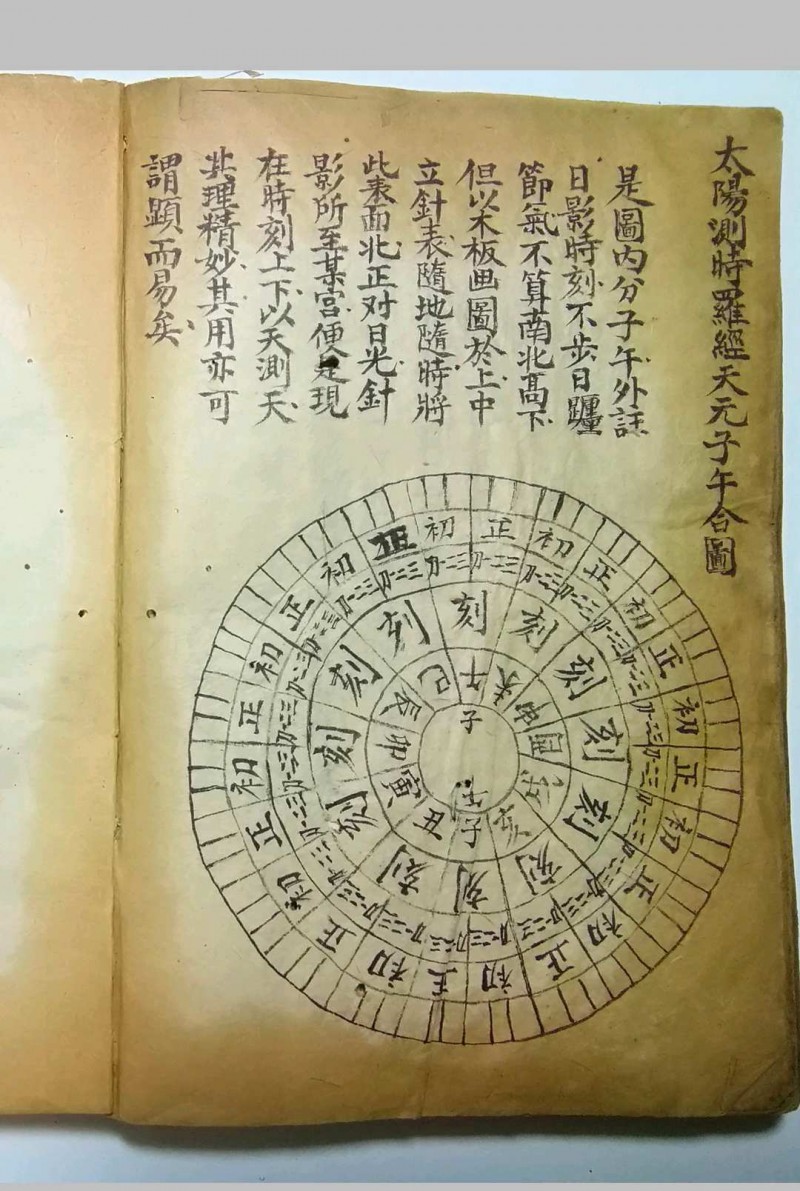 太陽測時羅經天元子午合圖
是圖內分子午外註
日影時刻不步日躔
節氣不算南北高下
但以木板画圖於上中
立針表隨地隨時將
此表面北正对日光針
影所至某宮便是現
在時刻上下以天測天
其理精妙其用亦可
謂顕而易矣
正 初 正 初 正 初 正 初 正 初 正 初 正 初 正 初 正 初 正 初 正 初 正 初
初一二三
刻 刻 刻 刻 刻 刻 刻 刻 刻 刻 刻 刻
午 未 申 酉 戌 亥 子 丑 寅 卯 辰 巳
子
午